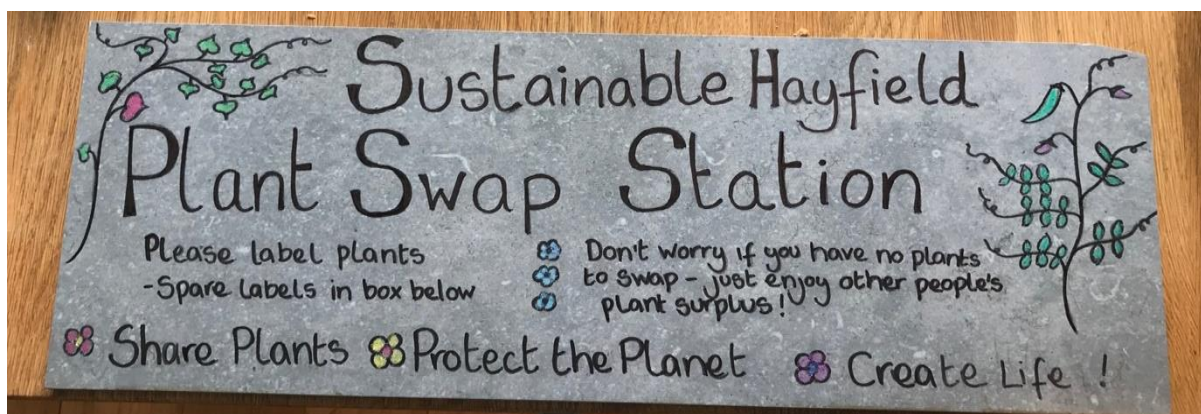 Sustainable Hayfield
Plant Swap Station
Please label plants
-Spare labels in box below
Don't worry if you have no plants
to swap - just enjoy other people's
plant surplus!
Share Plants Protect the Planet Create Life !